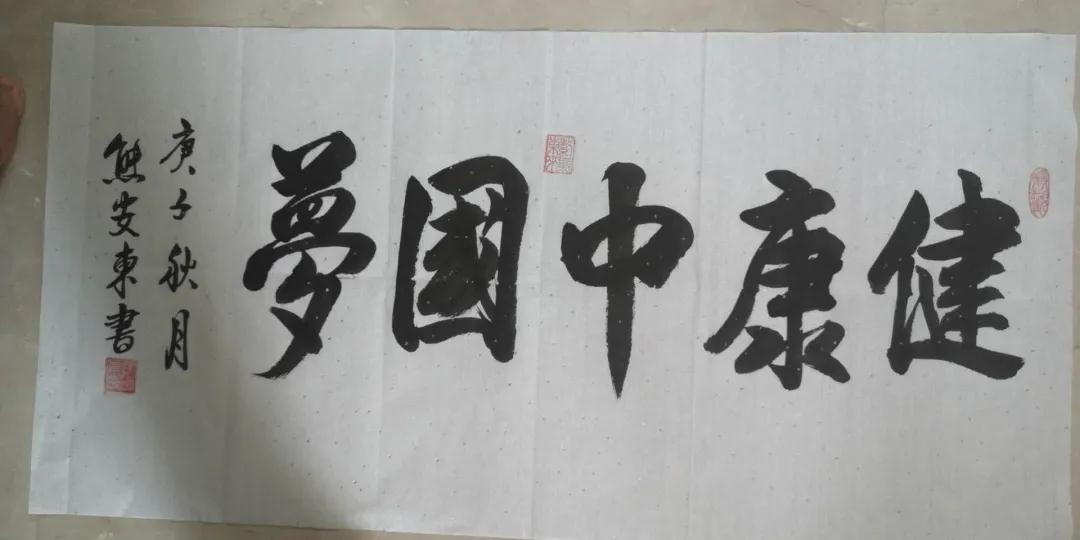 健康中國夢
庚子秋月
熊安東書